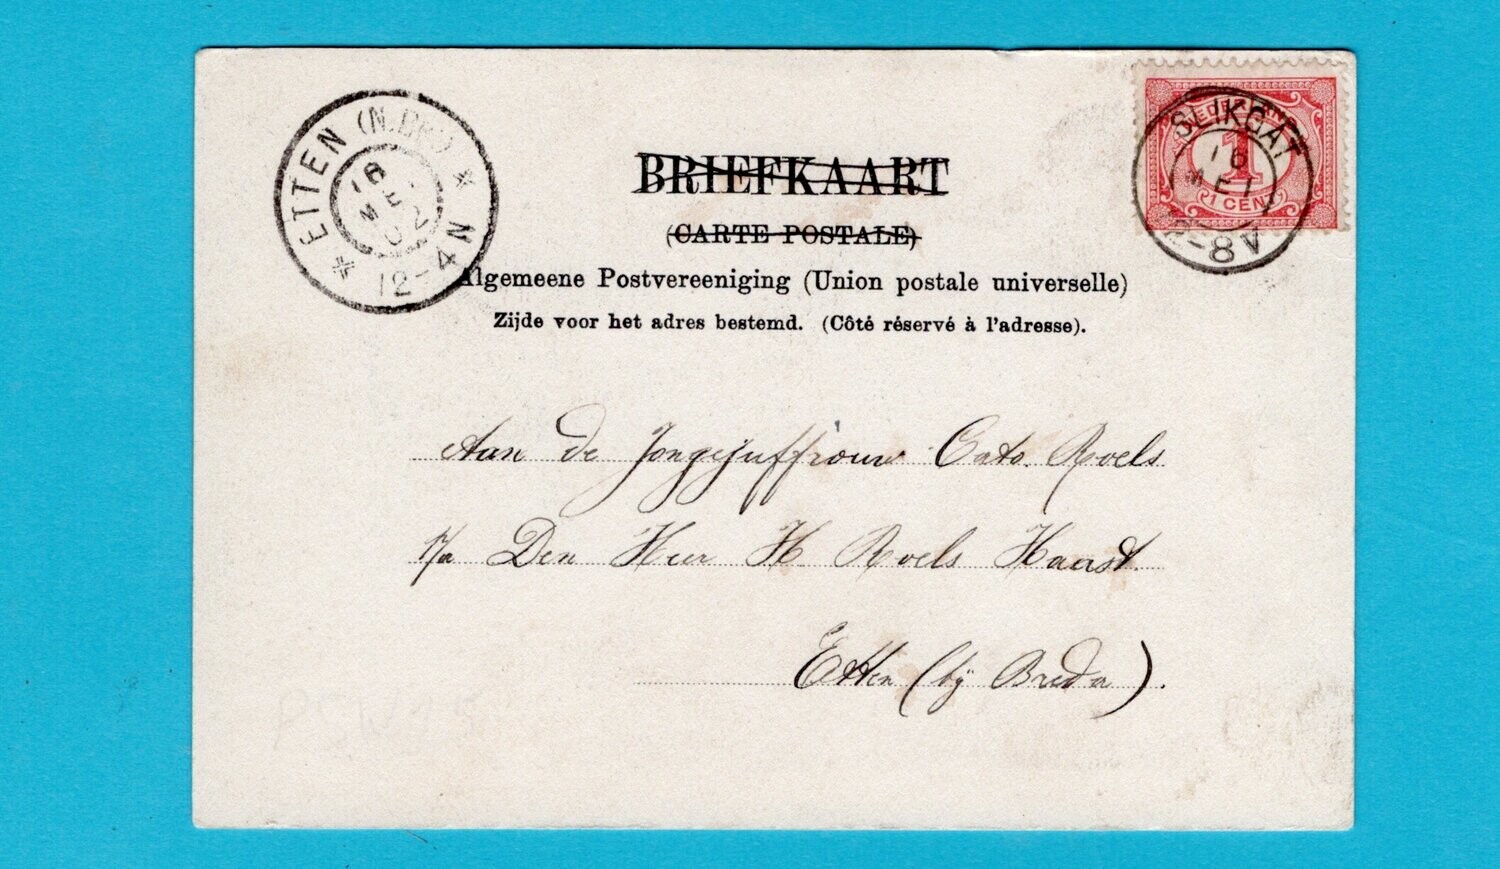 ETTEN (N.BR.)
16 ME 02
12-4N
NEDERLAND
1
1 CENT
SLIKGAT
16
MEI
8V
BRIEFKAART
(CARTE POSTALE)
Algemeene Postvereeniging (Union postale universelle)
Zijde voor het adres bestemd. (Côté réservé à l'adresse).
Aan de Jongejuffrouw Cato. Roels
p/a Den Heer H Roels Haast.
Etten (bij Breda).